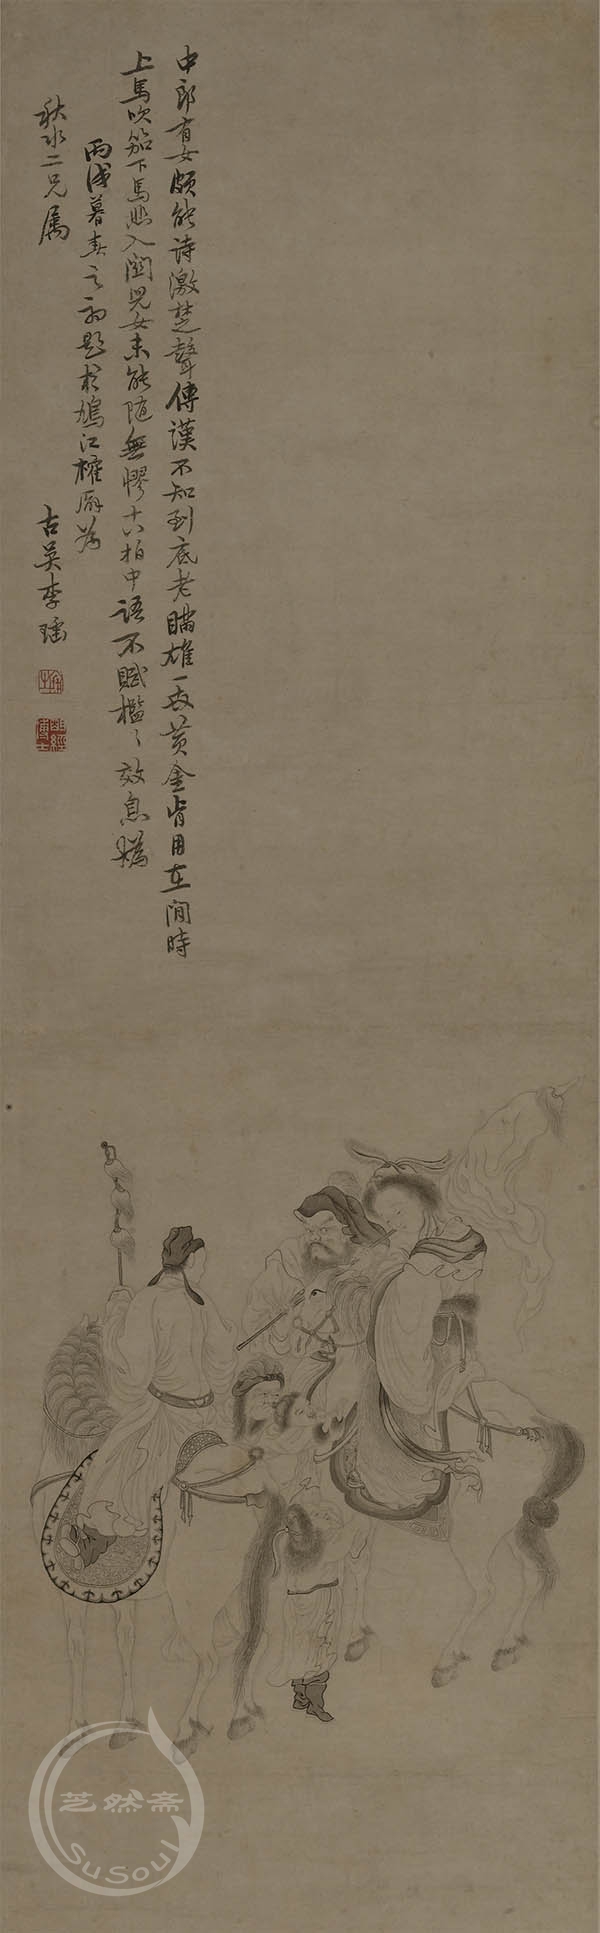 中郎有女頗能詩激楚聲傳漢不知到底老瞞雄一安黃金肯用在閒時
上馬吹笳下馬悲入關兒女未能隨無憀十八拍中語不賦檻〻效息媯
丙戌暮春之初題於鳩江榷廨為
秋水二兄属
古吴李瑶
芝然斋
SuSoul